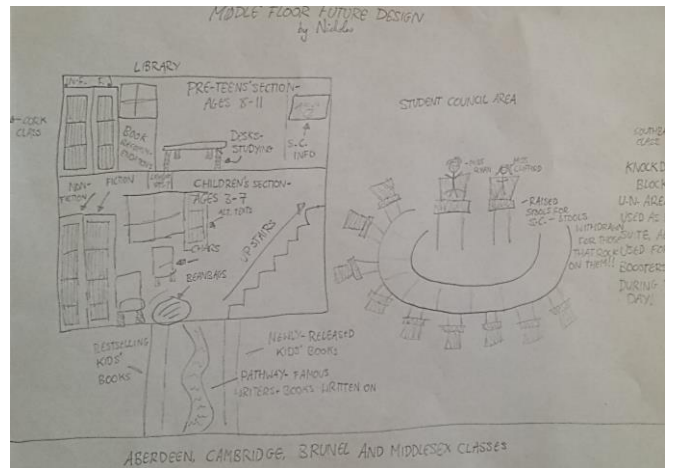 MIDDLE FLOOR FUTURE DESIGN
by Nicholas
LIBRARY
N-F. F.
PRE-TEENS' SECTION-
AGES 8-11
BOOK
DESKS-
STUDYING
S.C.
INFO
CORK
CLASS
NON-
FICTION
FICTION
CHILDREN'S SECTION-
AGES 3-7
ACT. TEXTS
CHAIRS
BEANBAGS
UPSTAIRS
BESTSELLING
KIDS'
BOOKS
NEWLY-RELEASED
KIDS' BOOKS
PATHWAY- FAMOUS
WRITERS+ BOOKS WRITTEN ON
STUDENT COUNCIL AREA
MISS
MISS
-RAISED
STOOLS FOR
S.C.- STOOLS
WITHDRAWN
FOR THOSE
THAT ROCK
ON THEM!!
CLASS
KNOCK D
BLOCK
U.N. AREA
USED AS
USED FO
BOOSTERS
DURING
DAY!
ABERDEEN, CAMBRIDGE, BRUNEL AND MIDDLESEX CLASSES